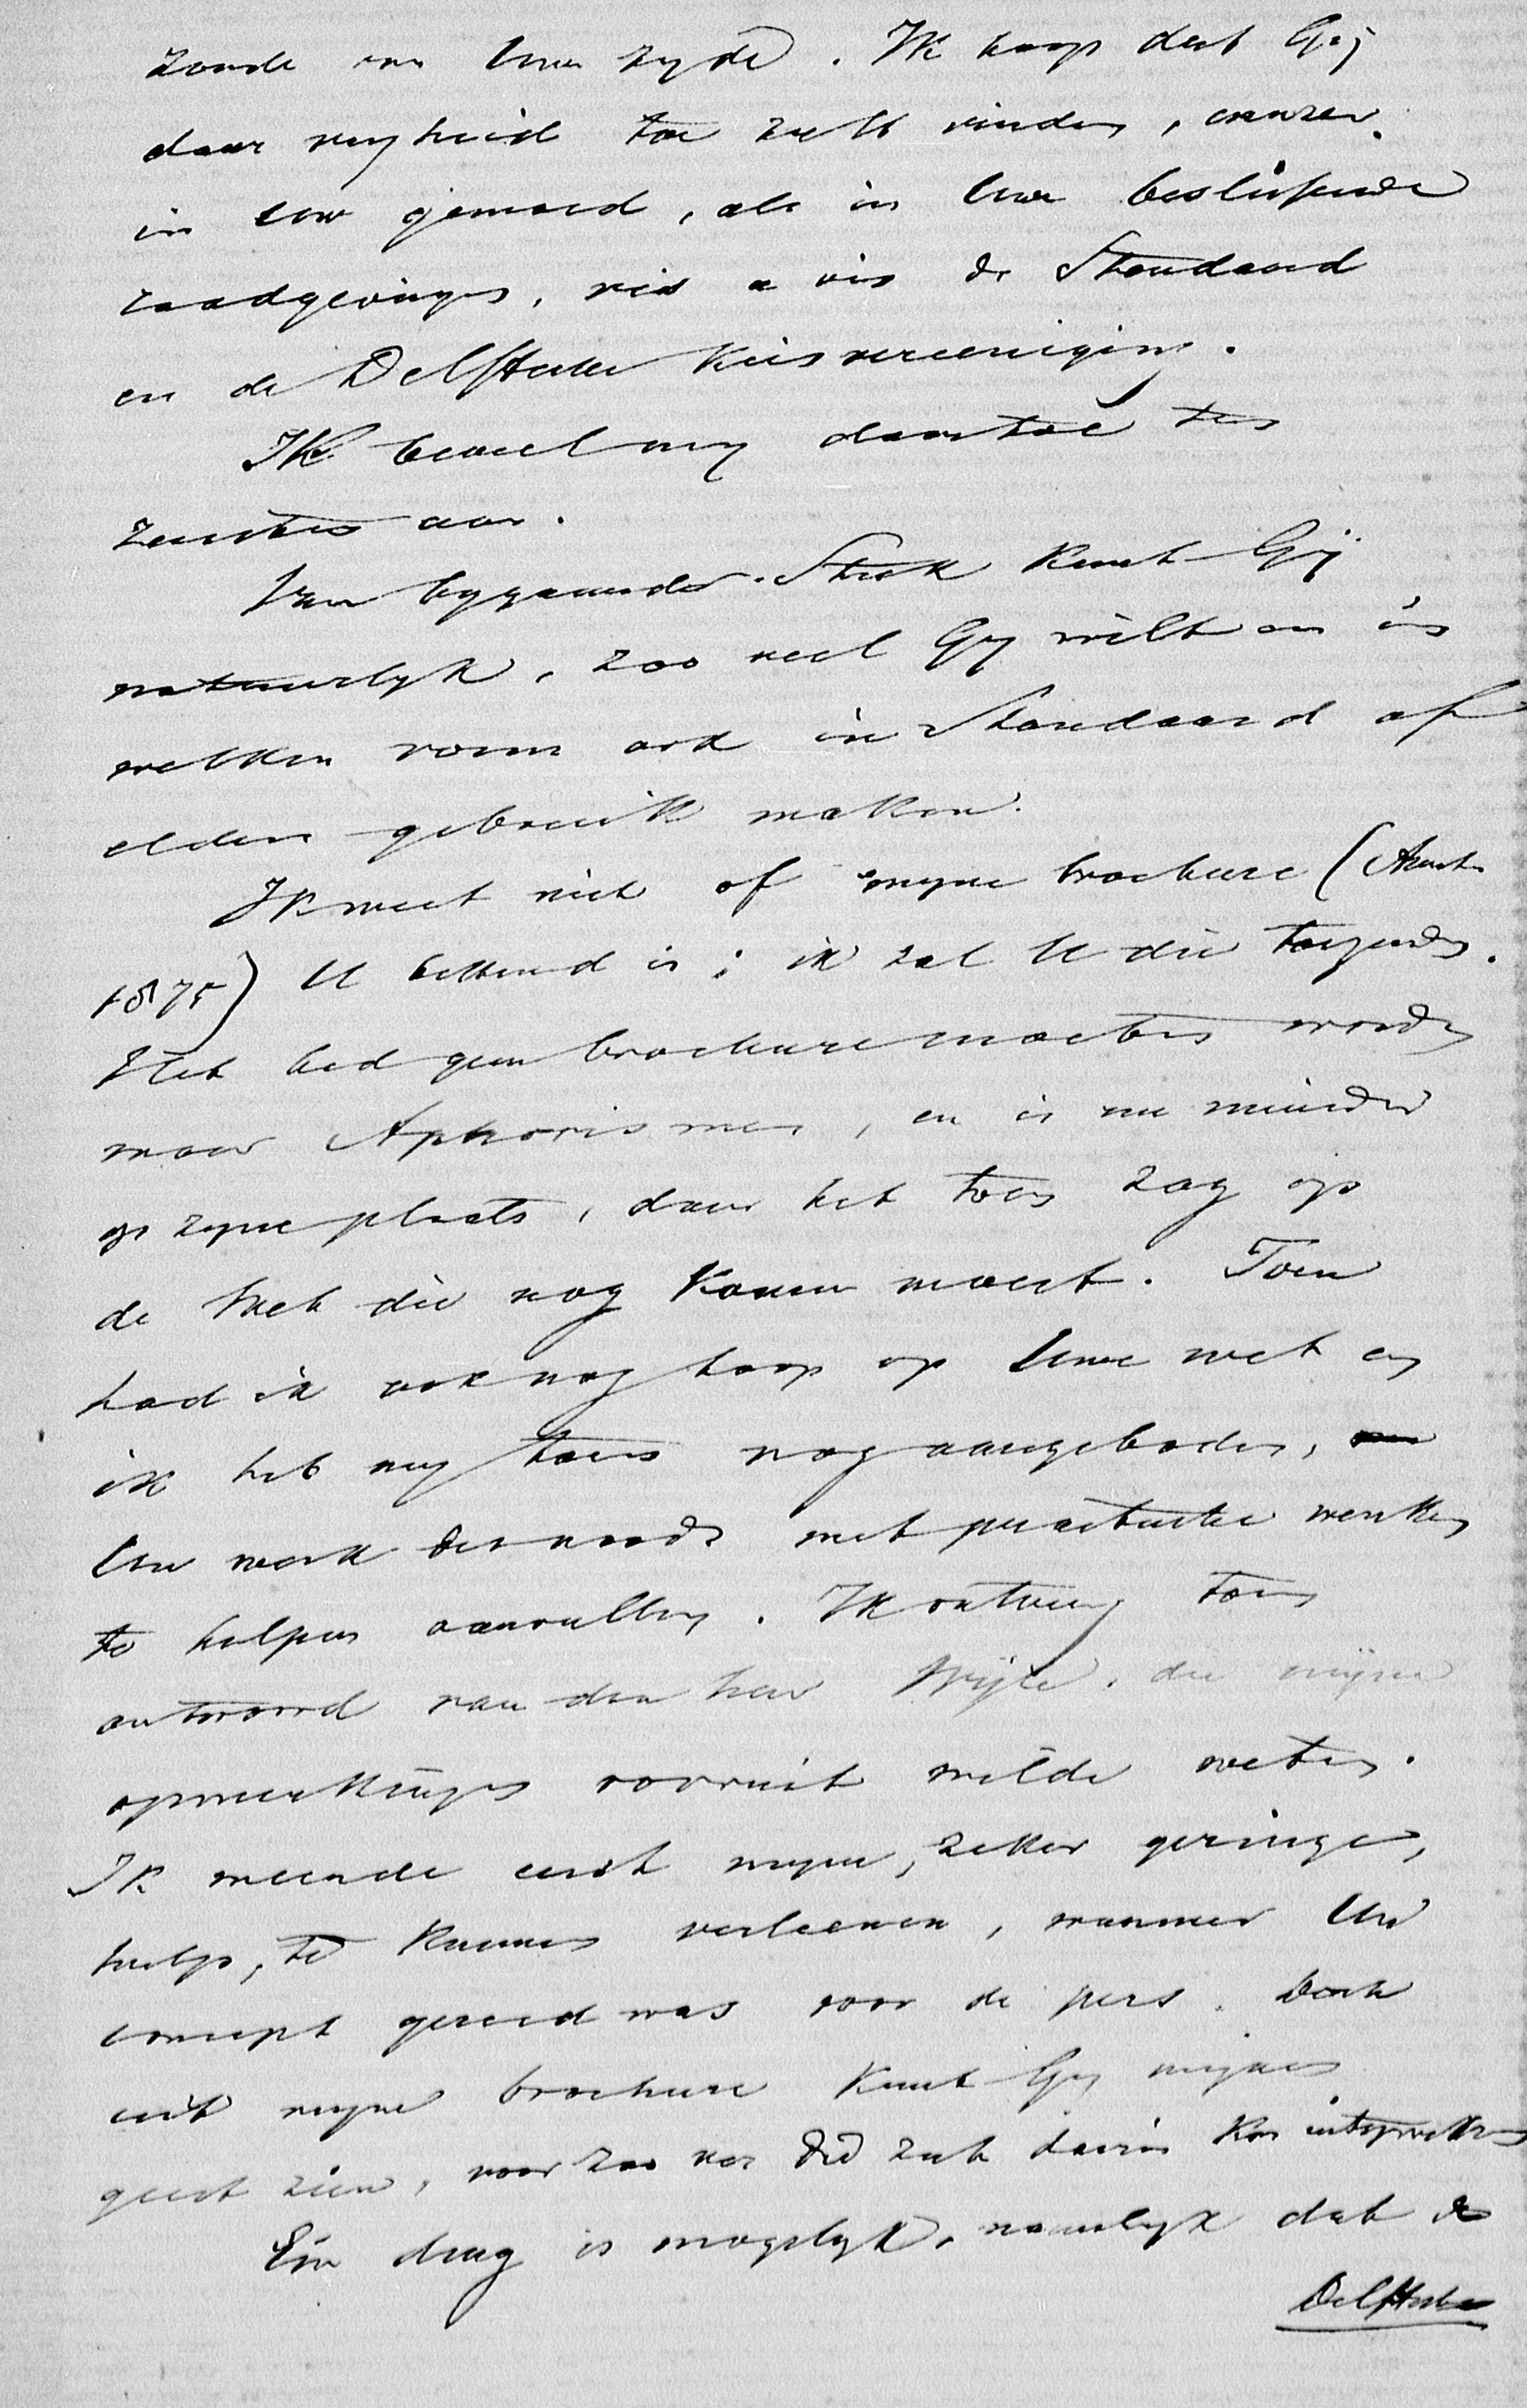 zonde van Uwe zyde. Ik hoop dat Gij
daar vryheid toe zult vinden,
in Uw gemoed, als in Uwe beslissende
raadgevingen, vis a vis de Standaard
en de Delftsche Kiesvereeniging.
Ik beveel my daartoe ten
zeerste aan.
Van bygaande Stuk kunt Gij
natuurlyk, zoo veel Gy wilt en in
welken vorm ook in Standaard of
elders gebruik maken.
Ik weet niet of myne brochure (
1875) U bekend is; ik zal U die toezenden.
Het had geen brochure moeten worden
maar Aphorismen, en is nu minder
op zyne plaats, daar het toen zag op
de Wet die nog komen moest. Toen
had ik ook nog hoop op Uwe wet en
ik heb my toen nog aangeboden,
Uw werk des noods met practische wenken
te helpen aanvullen. Ik ontving toen
antwoord van den heer, die mijne
opmerkingen vooruit wilde weten.
Ik meende eerst myne, zeker geringe,
hulp, te kunnen verleenen, wanneer Uw
concept gereed was voor de pers. Doch
uit myne brochure kunt Gy mynen
geest zien, voor zoo ver die zich daarin kon
Eén ding is mogelyk, namelyk dat de
Delftsche